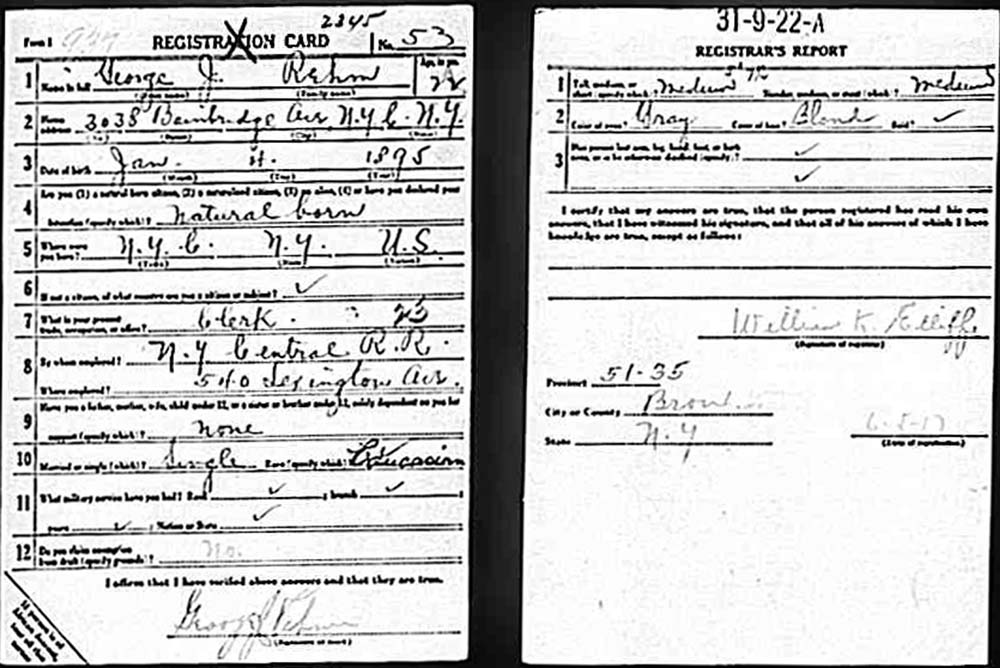 2345
Form 1 REGISTRATION CARD No. 53
Age, in yrs.
1 Name in full George J. Rehm
(Given name) (Family name)
2 Home address 3038 Bainbridge Ave N.Y.C. N.Y.
(No.) (Street) (City) (State)
3 Date of birth Jan. 1895
(Month) (Day) (Year)
Are you (1) a natural born citizen, (2) a naturalized citizen, (3) an alien, (4) or have you declared your
4 intention (specify which)? natural born
5 Where were you born? N.Y.C. N.Y. U.S.
(Town) (State) (Nation)
6 If not a citizen, of what country are you a citizen or subject? ✓
7 What is your present trade, occupation, or office? Clerk 23
8 By whom employed? N.Y Central R.R.
Where employed? 540 Lexington Ave.
Have you a father, mother, wife, child under 12, or a sister or brother under 12, solely dependent on you for
9 support (specify which)? none
10 Married or single (which)? Single Race (specify which)? Caucasian
11 What military service have you had? Rank ✓ ; branch ✓ ;
years ✓ ; Nation or State ✓
12 Do you claim exemption from draft (specify grounds)? No.
I affirm that I have verified above answers and that they are true.
George J Rehm
(Signature or mark)
31-9-22-A
REGISTRAR'S REPORT
1 Tall, medium, or short (specify which)? Medium Slender, medium, or stout (which)? medium
2 Color of eyes? Gray Color of hair? Blond Bald? ✓
3 Has person lost arm, leg, hand, foot, or both
eyes, or is he otherwise disabled (specify)? ✓
✓
I certify that my answers are true, that the person registered has read his own
answers, that I have witnessed his signature, and that all of his answers of which I have
knowledge are true, except as follows:
William K. Elliff
(Signature of registrar)
Precinct 51-35
City or County Bronx
State N.Y
6-5-17
(Date of registration)